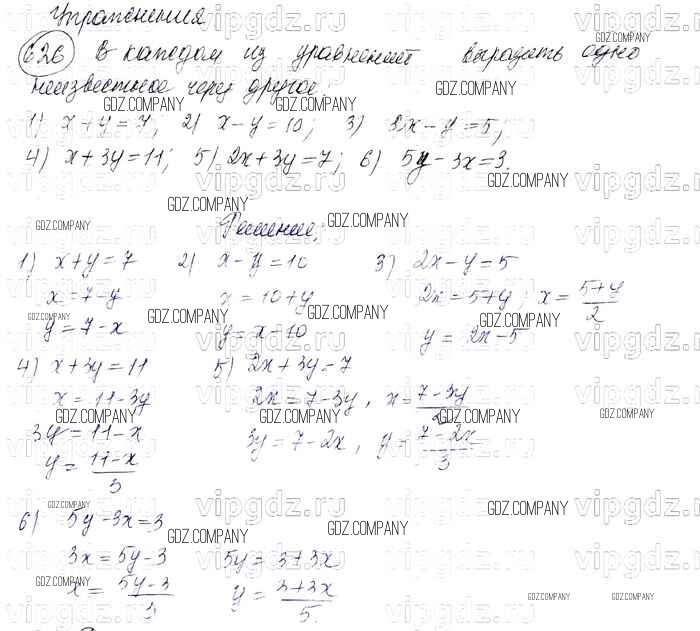 Упражнения
626 В каждом из уравнений выразить одно
неизвестное через другое:
1) x+y=7; 2) x-y=10; 3) 2x-y=5;
4) x+3y=11; 5) 2x+3y=7; 6) 5y-3x=3.
Решение:
1) x+y=7 2) x-y=10 3) 2x-y=5
x=7-y x=10+y 2x=5+y; x=(5+y)/2
y=7-x y=x-10 y=2x-5
4) x+3y=11 5) 2x+3y-7
x=11-3y 2x=7-3y, x=(7-3y)/2
3y=11-x 3y=7-2x, y=(7-2x)/3
y=(11-x)/3
6) 5y-3x=3
3x=5y-3 5y=3+3x
x=(5y-3)/3 y=(3+3x)/5
vipgdz.ru
GDZ.COMPANY